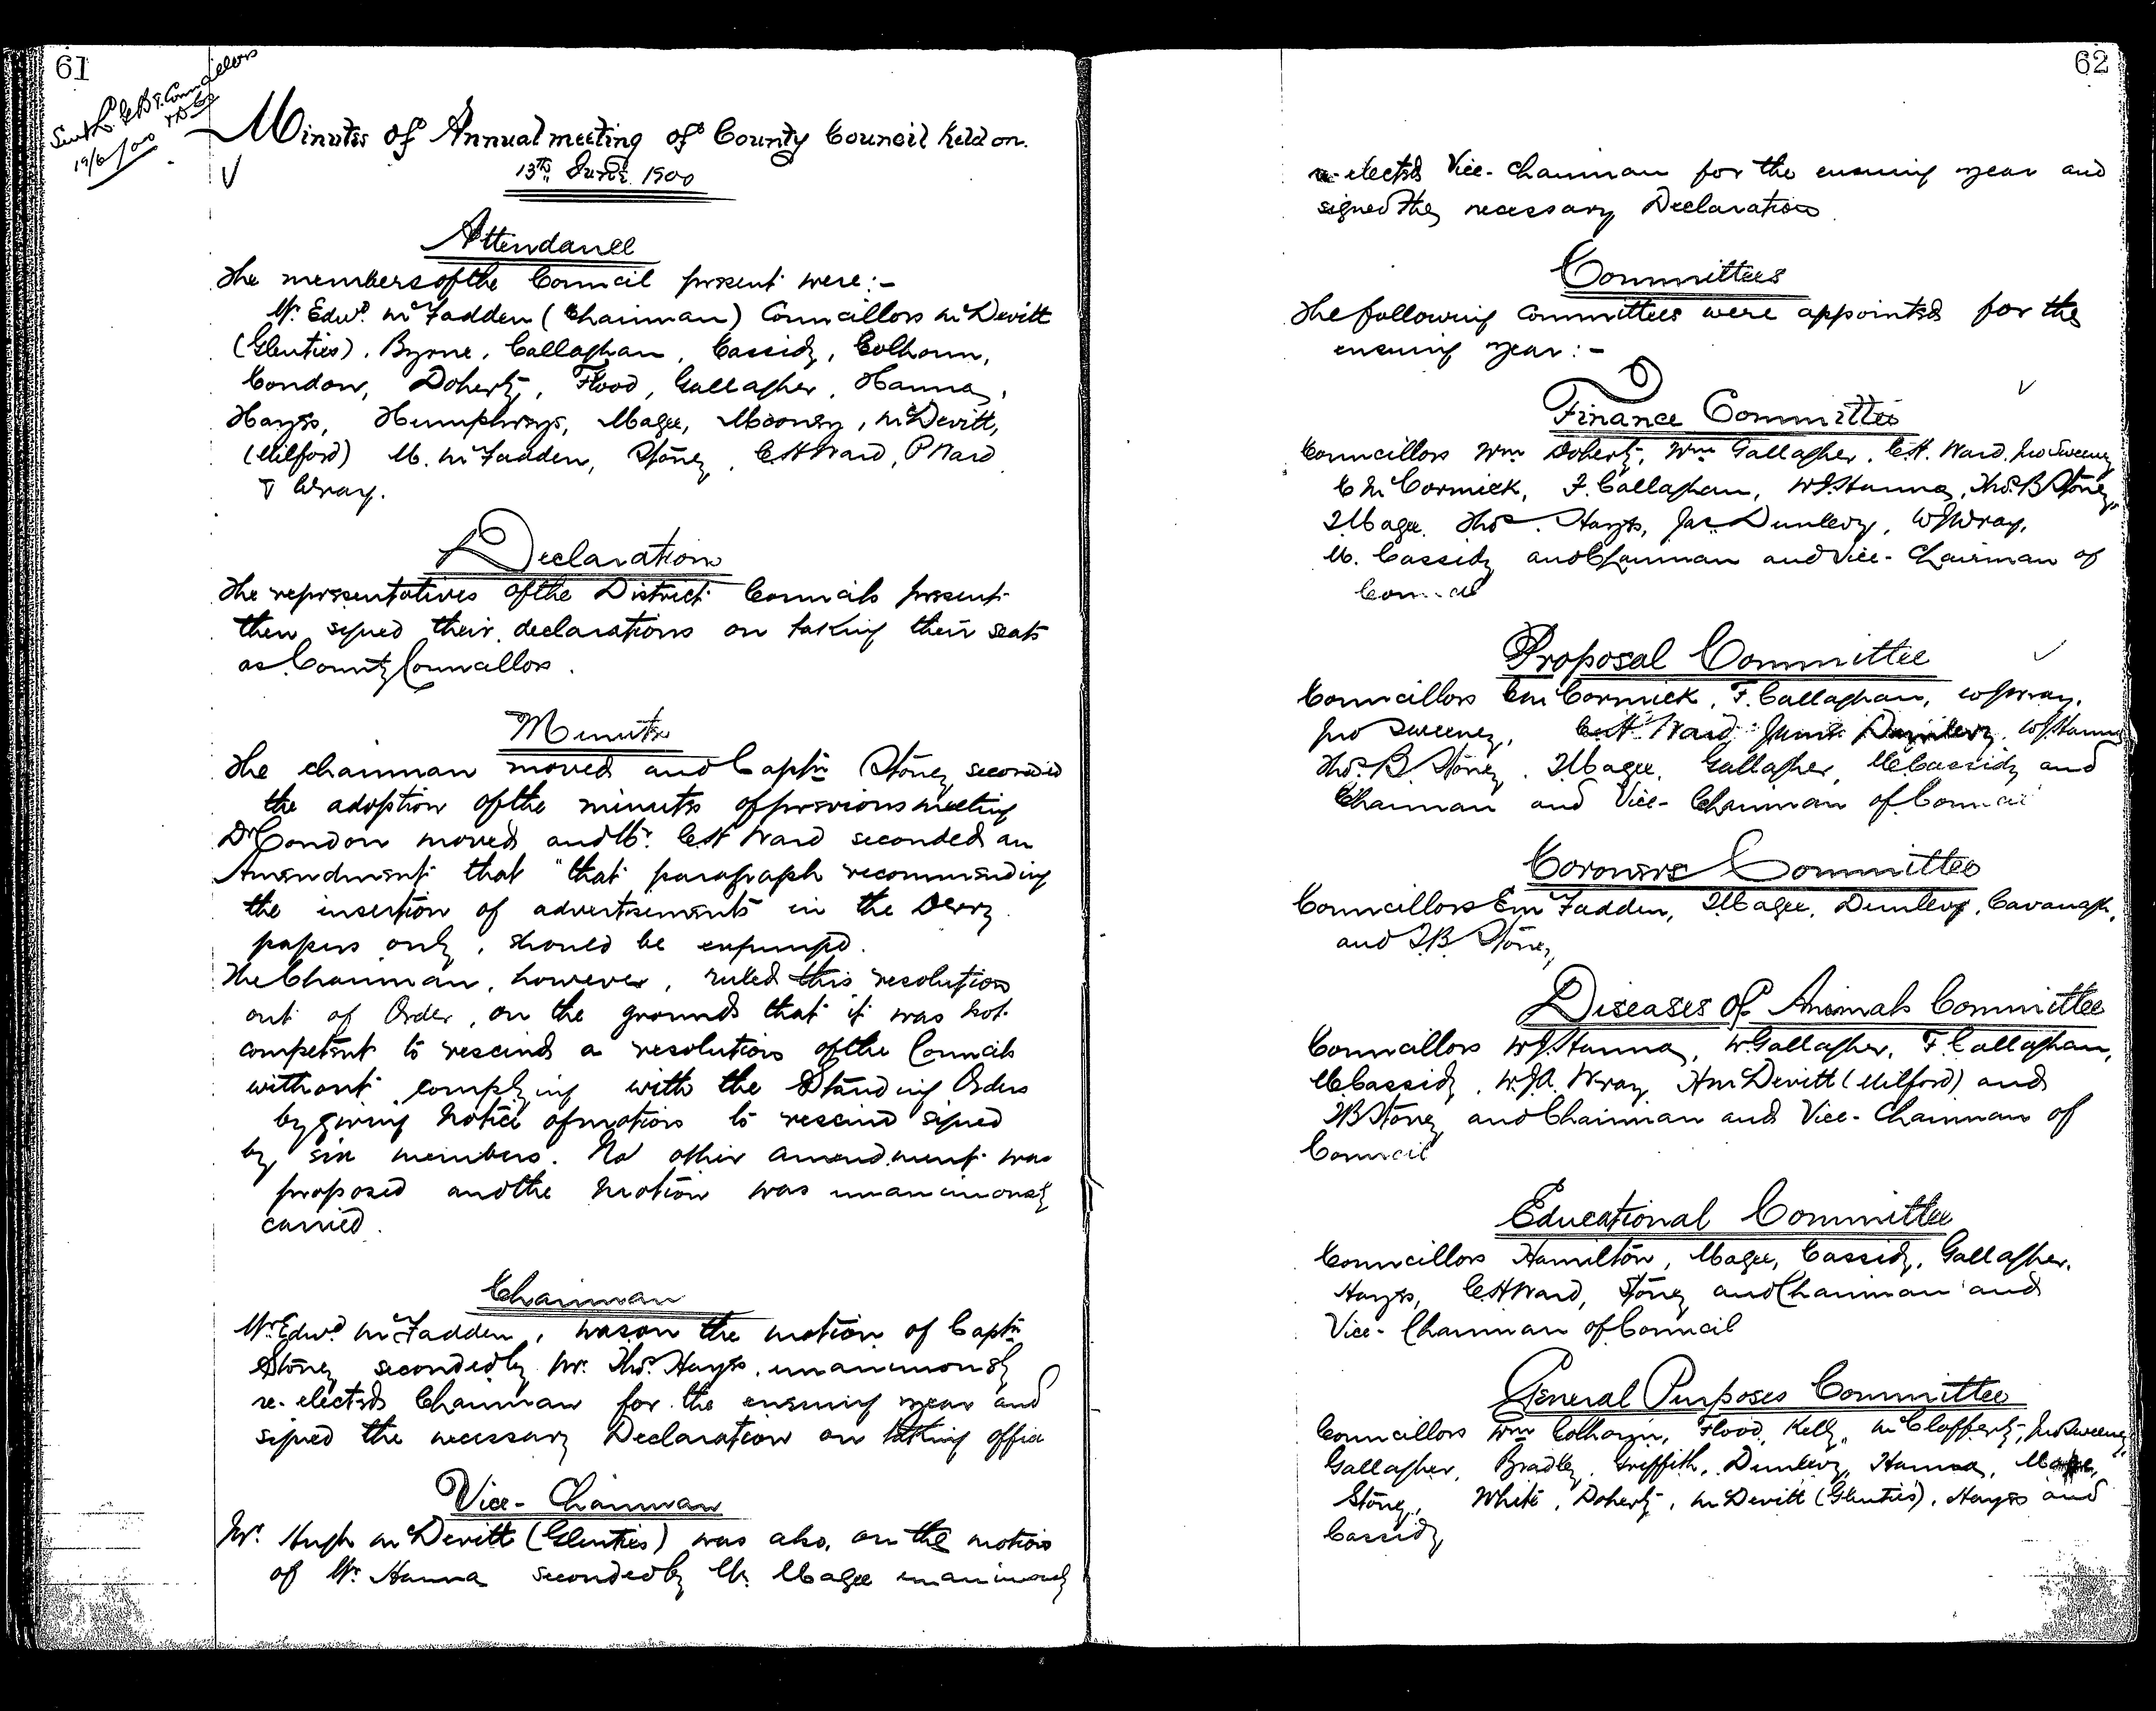 61
Sent L.G.B. & Councillors
19/6/00
Minutes of Annual meeting of County Council held on
13th June 1900
Attendance
The members of the Council present were:-
Mr. Edwd. McFadden (Chairman) Councillors McDevitt
(Glenties), Byrne, Callaghan, Cassidy, Colhoun,
Condon, Doherty, Flood, Gallagher, Hanna,
Hayes, Humphreys, Magee, Mooney, McDevitt,
(Milford) M. McFadden, Stoney, C.H Ward, P Ward
& Wray.
Declaration
The representatives of the District Councils present
then signed their declarations on taking their seats
as County Councillors.
Minutes
The chairman moved and Captn Stoney seconded
the adoption of the minutes of previous meeting
Dr Condon moved and Mr. C.H Ward seconded an
Amendment that "that paragraph recommending
the insertion of advertisements in the Derry
papers only, should be expunged.
The Chairman, however, ruled this resolution
out of Order, on the grounds that it was not
competent to rescind a resolution of the Councils
without complying with the Standing Orders
by giving Notice of motion to rescind signed
by six members. No other amendment was
proposed and the motion was unanimously
carried.
Chairman
Mr. Edwd. McFadden, was on the motion of Captn
Stoney seconded by Mr. Thos. Hayes, unanimously
re-elected Chairman for the ensuing year and
signed the necessary Declaration on taking office
Vice-Chairman
Mr. Hugh McDevitt (Glenties) was also, on the motion
of Mr. Hanna seconded by Mr. Magee unanimously
62
re-elected Vice-Chairman for the ensuing year and
signed the necessary Declaration
Committees
The following Committees were appointed for the
ensuing year:-
Finance Committee
Councillors Wm Doherty, Wm Gallagher, C.H. Ward, Jno Sweeney
C McCormick, F. Callaghan, W.J. Hanna, Thos. B Stoney,
J Magee, Thos. Hayes, Jas Dunlevy, W J Wray,
M. Cassidy and Chairman and Vice-Chairman of
Council
Proposal Committee
Councillors C McCormick, F. Callaghan, W J Wray,
Jno Sweeney, C.H. Ward James Dunlevy, W J Hanna
Thos. B. Stoney, J Magee, Gallagher, M Cassidy and
Chairman and Vice-Chairman of Council
Coroners Committee
Councillors E McFadden, J Magee, Dunlevy, Cavanagh,
and T.B. Stoney
Diseases of Animals Committee
Councillors W J. Hanna, W. Gallagher, F. Callaghan,
M Cassidy, W.J.A. Wray H McDevitt (Milford) and
T B Stoney and Chairman and Vice-Chairman of
Council
Educational Committee
Councillors Hamilton, Magee, Cassidy, Gallagher,
Hayes, C.H Ward, Stoney and Chairman and
Vice-Chairman of Council
General Purposes Committee
Councillors Wm Colhoun, Flood, Kelly, McClafferty, Jno Sweeney,
Gallagher, Bradley, Griffith, Dunlevy, Hanna, Magee,
Stoney, White, Doherty, McDevitt (Glenties), Hayes and
Cassidy